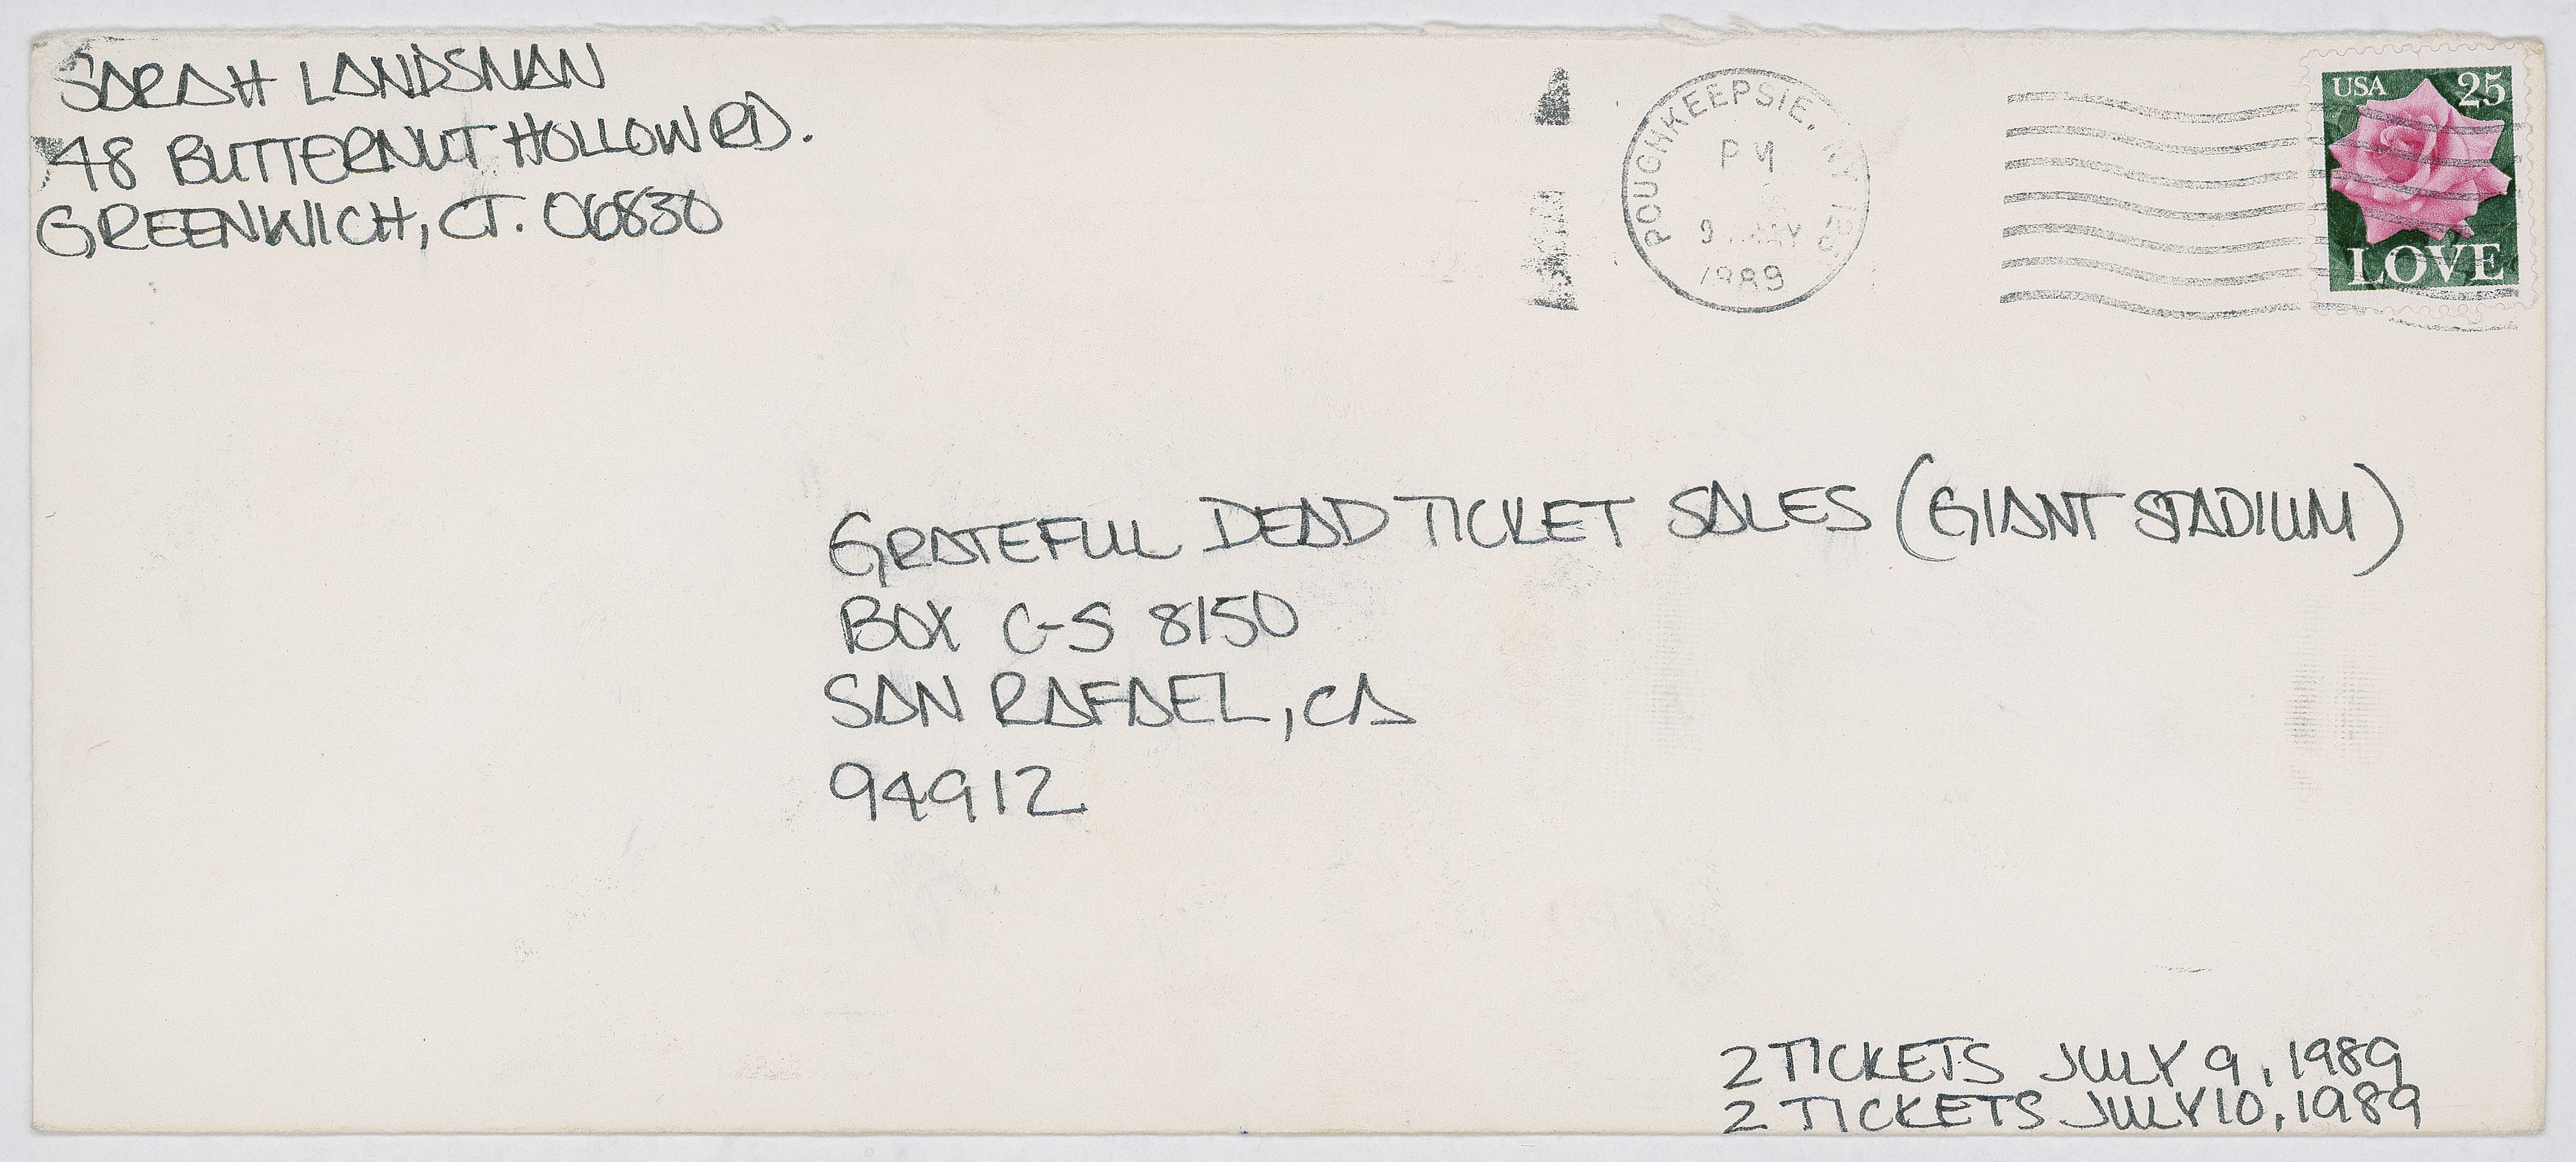 SARAH LANDSMAN
48 BUTTERNUT HOLLOW RD.
GREENWICH, CT. 06830
POUGHKEEPSIE, NY
PM
9 MAY
1989
USA 25
LOVE
GRATEFUL DEAD TICKET SALES (GIANT STADIUM)
BOX C-S 8150
SAN RAFAEL, CA
94912
2 TICKETS JULY 9, 1989
2 TICKETS JULY 10, 1989